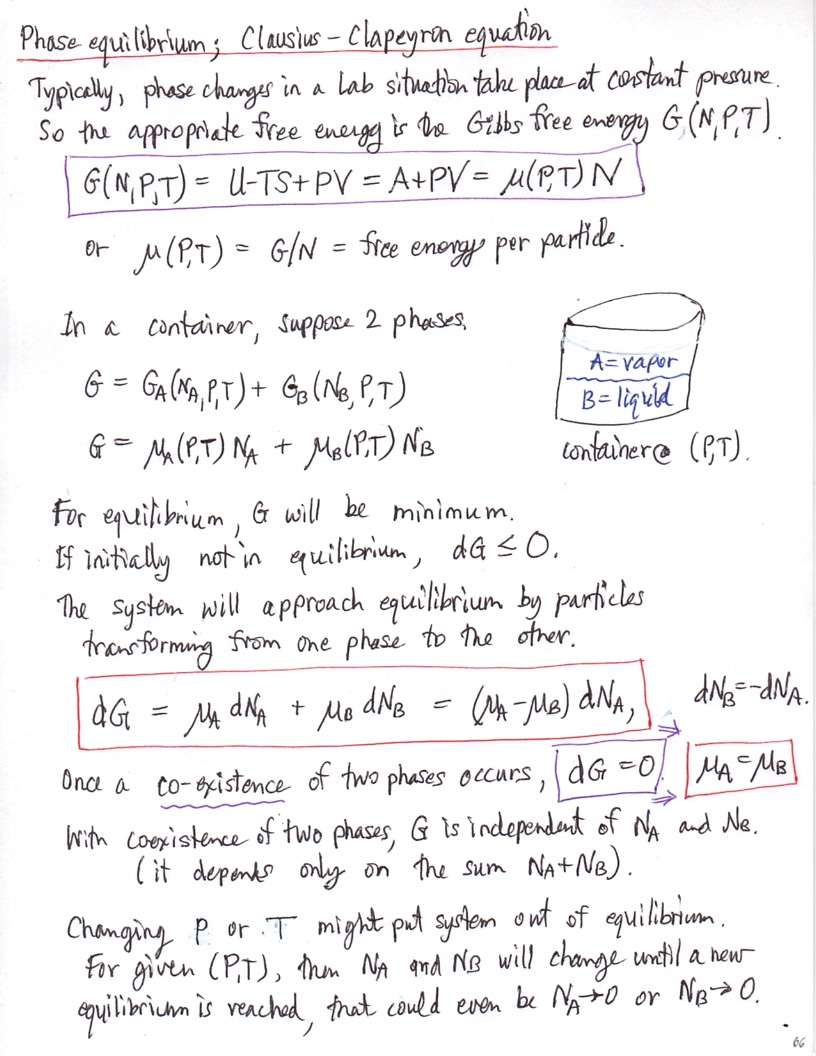 Phase equilibrium; Clausius-Clapeyron equation
Typically, phase changes in a Lab situation take place at constant pressure.
So the appropriate free energy is the Gibbs free energy G(N,P,T).
G(N,P,T) = U-TS+PV = A+PV = μ(P,T) N
or μ(P,T) = G/N = free energy per particle.
In a container, suppose 2 phases.
A=vapor
G = G_A(N_A,P,T) + G_B(N_B,P,T)
B=liquid
G = μ_A(P,T) N_A + μ_B(P,T) N_B
container@ (P,T).
For equilibrium, G will be minimum.
If initially not in equilibrium, dG ≤ 0.
The system will approach equilibrium by particles
transforming from one phase to the other.
dG = μ_A dN_A + μ_B dN_B = (μ_A-μ_B) dN_A, dN_B=-dN_A.
Once a co-existence of two phases occurs, dG = 0 ⇒ μ_A=μ_B
With coexistence of two phases, G is independent of N_A and N_B.
(it depends only on the sum N_A+N_B).
Changing P or T might put system out of equilibrium.
For given (P,T), then N_A and N_B will change until a new
equilibrium is reached, that could even be N_A→0 or N_B→0.
66